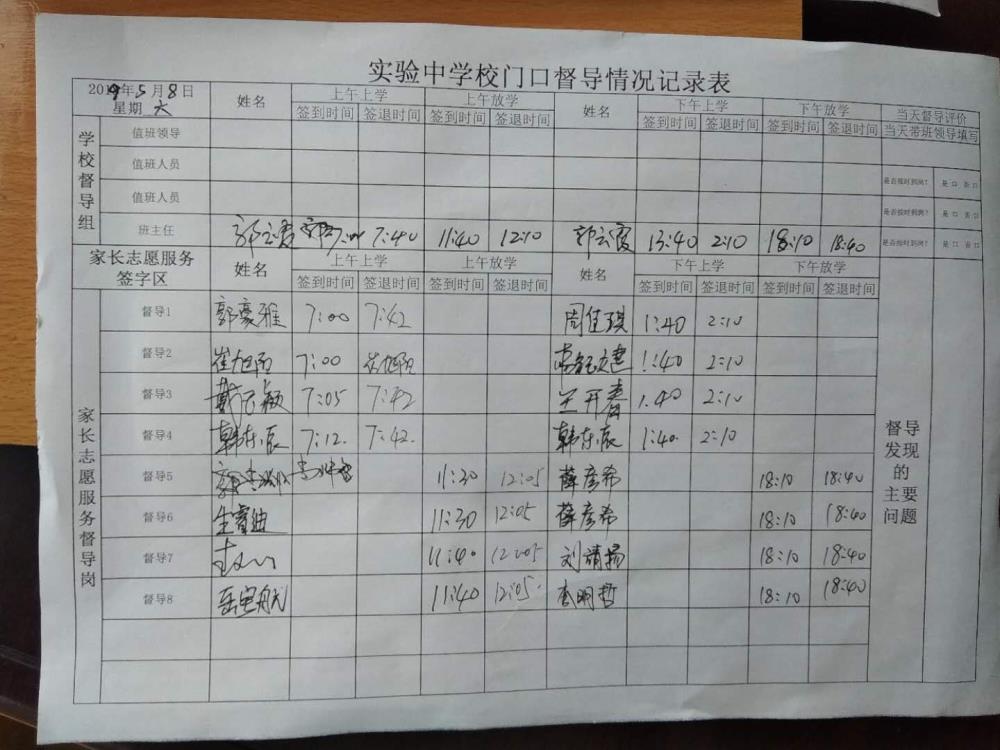 实验中学校门口督导情况记录表
2019年5月8日
星期 六
姓名 上午上学 上午放学 姓名 下午上学 下午放学 当天督导评价
签到时间 签退时间 签到时间 签退时间 签到时间 签退时间 签到时间 签退时间 当天带班领导填写
学校督导组
值班领导
值班人员 是否按时到岗? 是 口 否 口
值班人员 是否按时到岗? 是 口 否 口
班主任 郭云霞 7:40 11:40 12:10 郭云霞 13:40 2:10 18:10 18:40 是否按时到岗? 是 口 否 口
家长志愿服务签字区 姓名 上午上学 上午放学 姓名 下午上学 下午放学
签到时间 签退时间 签到时间 签退时间 签到时间 签退时间 签到时间 签退时间
家长志愿服务督导岗
督导1 郭豪雅 7:00 7:42 周佳琪 1:40 2:10
督导2 崔旭阳 7:00 1:40 2:10
督导3 7:05 7:42 兰开春 1.40 2:10
督导4 韩东辰 7:12. 7:42. 韩东辰 1:40. 2:10
督导5 11:30 12:05 薛彦希 18:10 18:40
督导6 11:30 12:05 薛彦希 18:10 18:40
督导7 11:40 12:05 刘靖扬 18:10 18:40
督导8 11:40 12:05. 李明哲 18:10 18:40
督导
发现
的
主要
问题